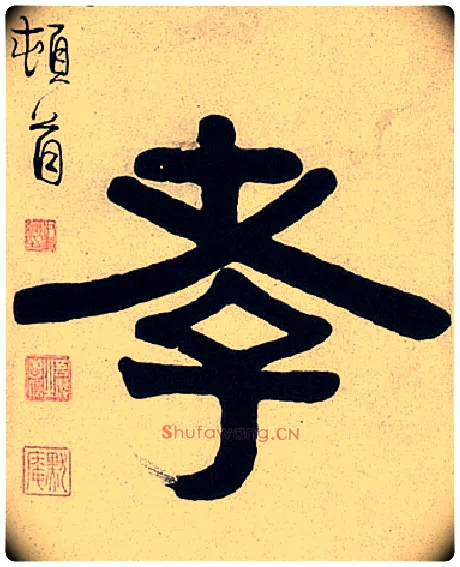 孝
頓首
默庵
Shufawang.CN